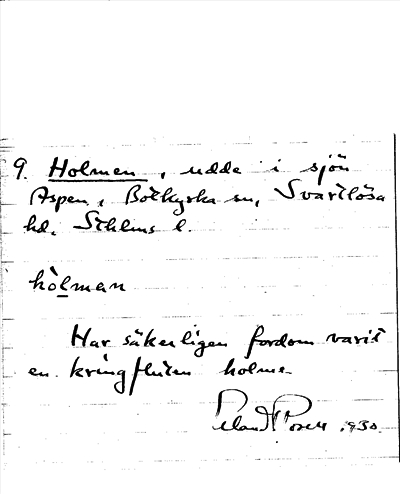 9. Holmen, udde i sjön
Aspen, Botkyrka sn, Svartlösa
hd, Sthlms l.
hòlman
Har säkerligen fordom varit
en kringfluten holme.
1930